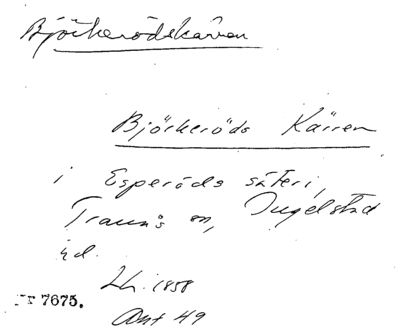 Björkerödskärren
Björkeröds Kärren
i Esperöds säteri,
Tranås sn, Ingelstad
hd.
Lh. 1858
Ant 49
7675.